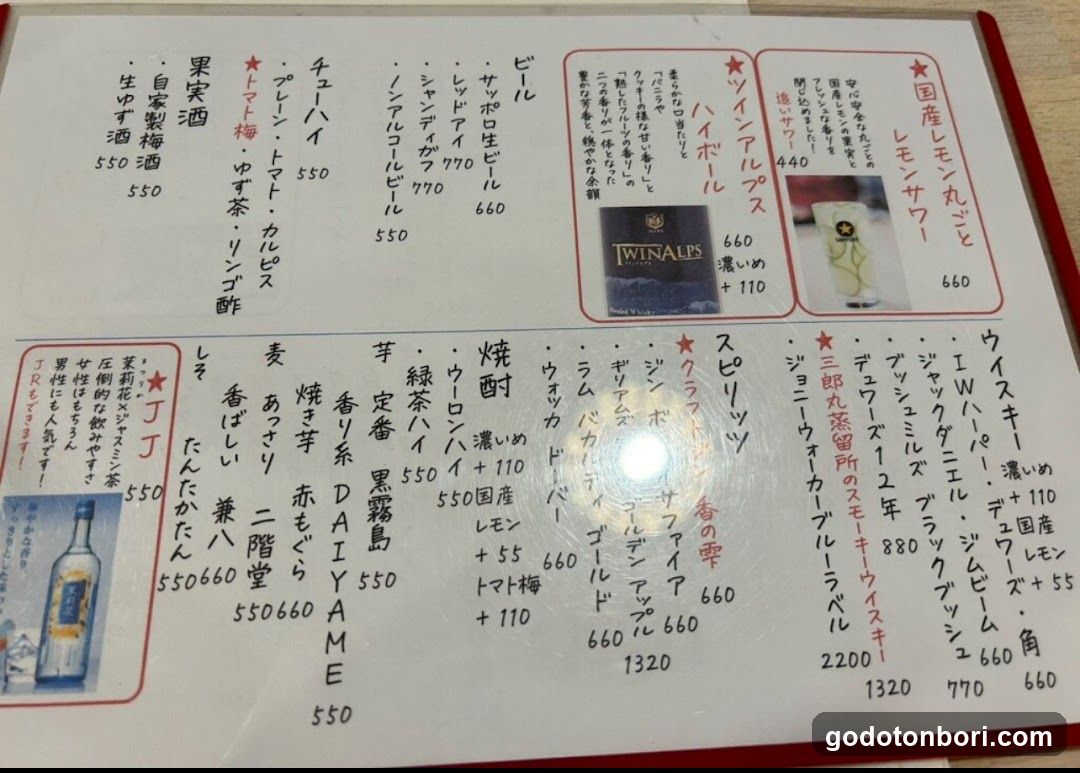 ★国産レモン丸ごと
レモンサワー
660
安心安全な丸ごとの
国産レモンの果実と
フレッシュな香りを
閉じ込めました!
追いサワー
440
SAPPORO
★ツインアルプス
ハイボール
660
濃いめ
+ 110
柔らかな口当たりと
「バニラや
クッキーの様な甘い香り」と
「熟したフルーツの香り」の
二つの香りが一体となった
豊かな芳香と、穏やかな余韻
TWINALPS
ツインアルプス
Blended Whisky
ビール
・サッポロ生ビール 660
・レッドアイ 770
・シャンディガフ 770
・ノンアルコールビール 550
チューハイ 550
・プレーン・トマト・カルピス
★トマト梅・ゆず茶・リンゴ酢
果実酒
・自家製梅酒 550
・生ゆず酒 550
ウイスキー 濃いめ + 110 国産レモン + 55
・IWハーパー・デュワーズ・角 660
・ジャックダニエル・ジムビーム 660
・ブッシュミルズ ブラックブッシュ 770
・デュワーズ12年 880
★三郎丸蒸留所のスモーキーウイスキー 1320
・ジョニーウォーカーブルーラベル 2200
スピリッツ
★クラフトジン 香の雫 660
・ジン ボ サファイア 660
・ギリアムズ ゴールデン アップル 1320
・ラム バカーディ ゴールド 660
・ウォッカ ドーバー 660
焼酎 濃いめ + 110 国産レモン + 55 トマト梅 + 110
・ウーロンハイ 550
・緑茶ハイ 550
芋 定番 黒霧島 550
香り系 DAIYAME 550
焼き芋 赤もぐら 660
麦 あっさり 二階堂 550
香ばしい 兼八 660
しそ たんたかたん 550
★JJ
まつりか
茉莉花×ジャスミン茶
圧倒的な飲みやすさ
女性はもちろん
男性にも人気です!
JRもできます!
550
華やかな香り、
すっきりとした味わ
茉莉花
godotonbori.com